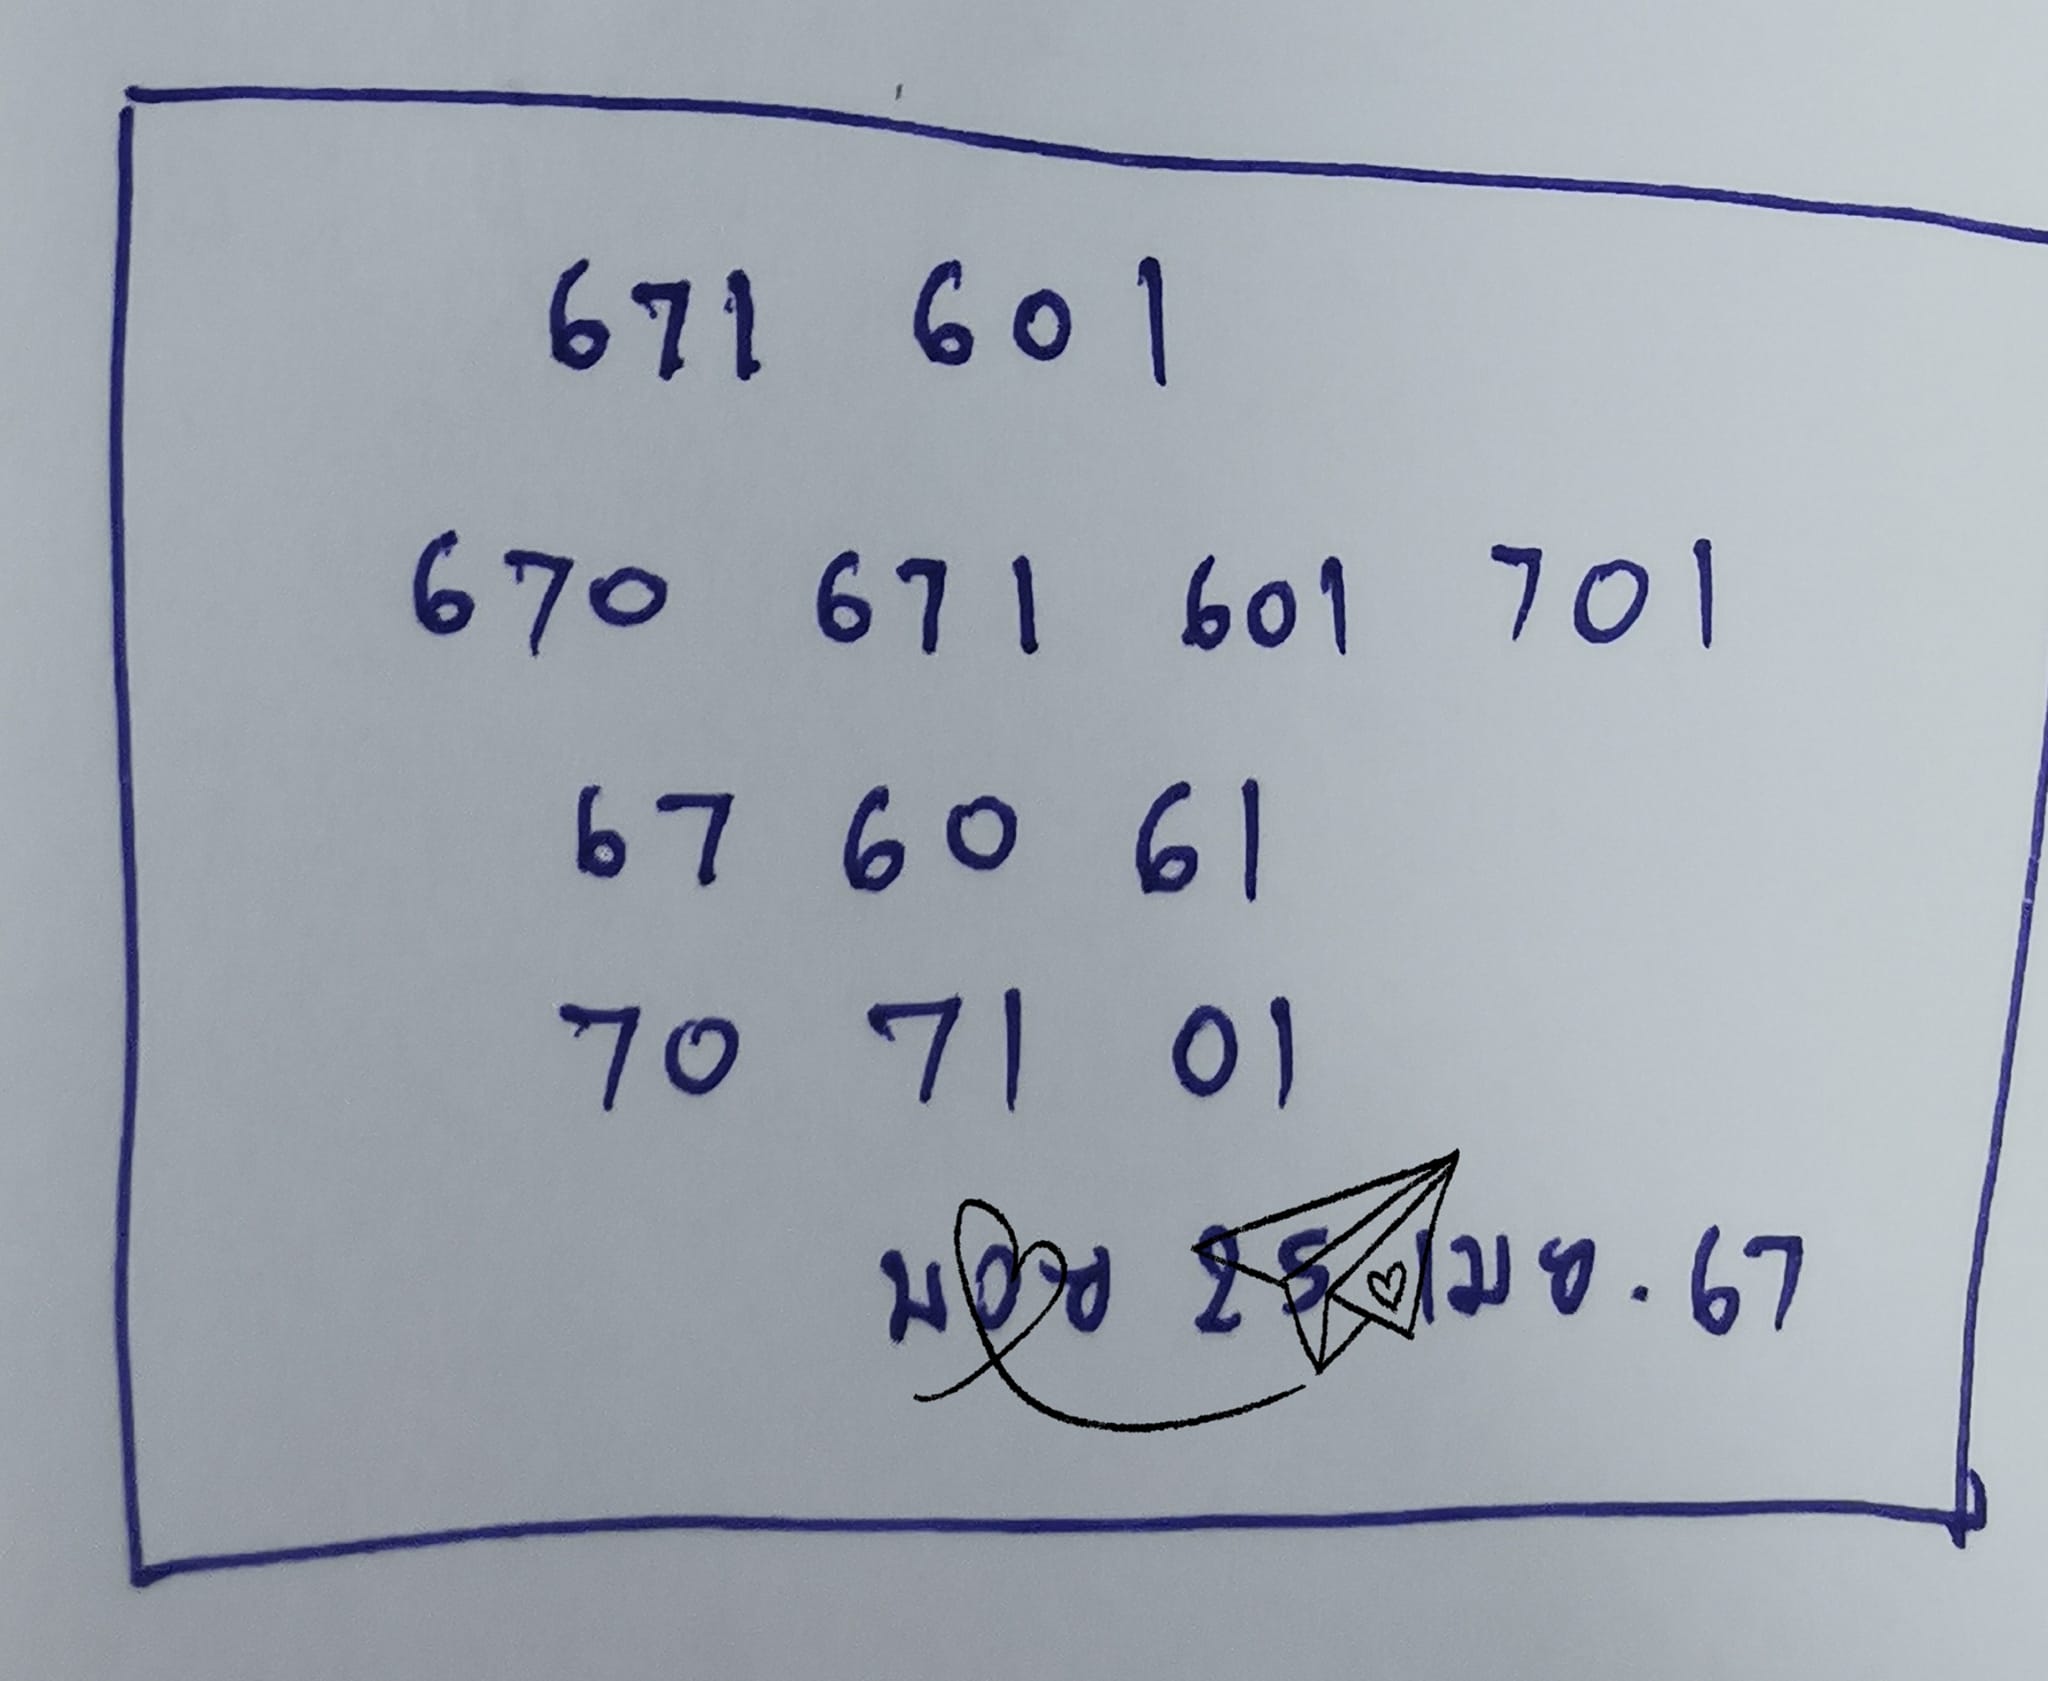 671 601
670 671 601 701
67 60 61
70 71 01
25 เมย. 67